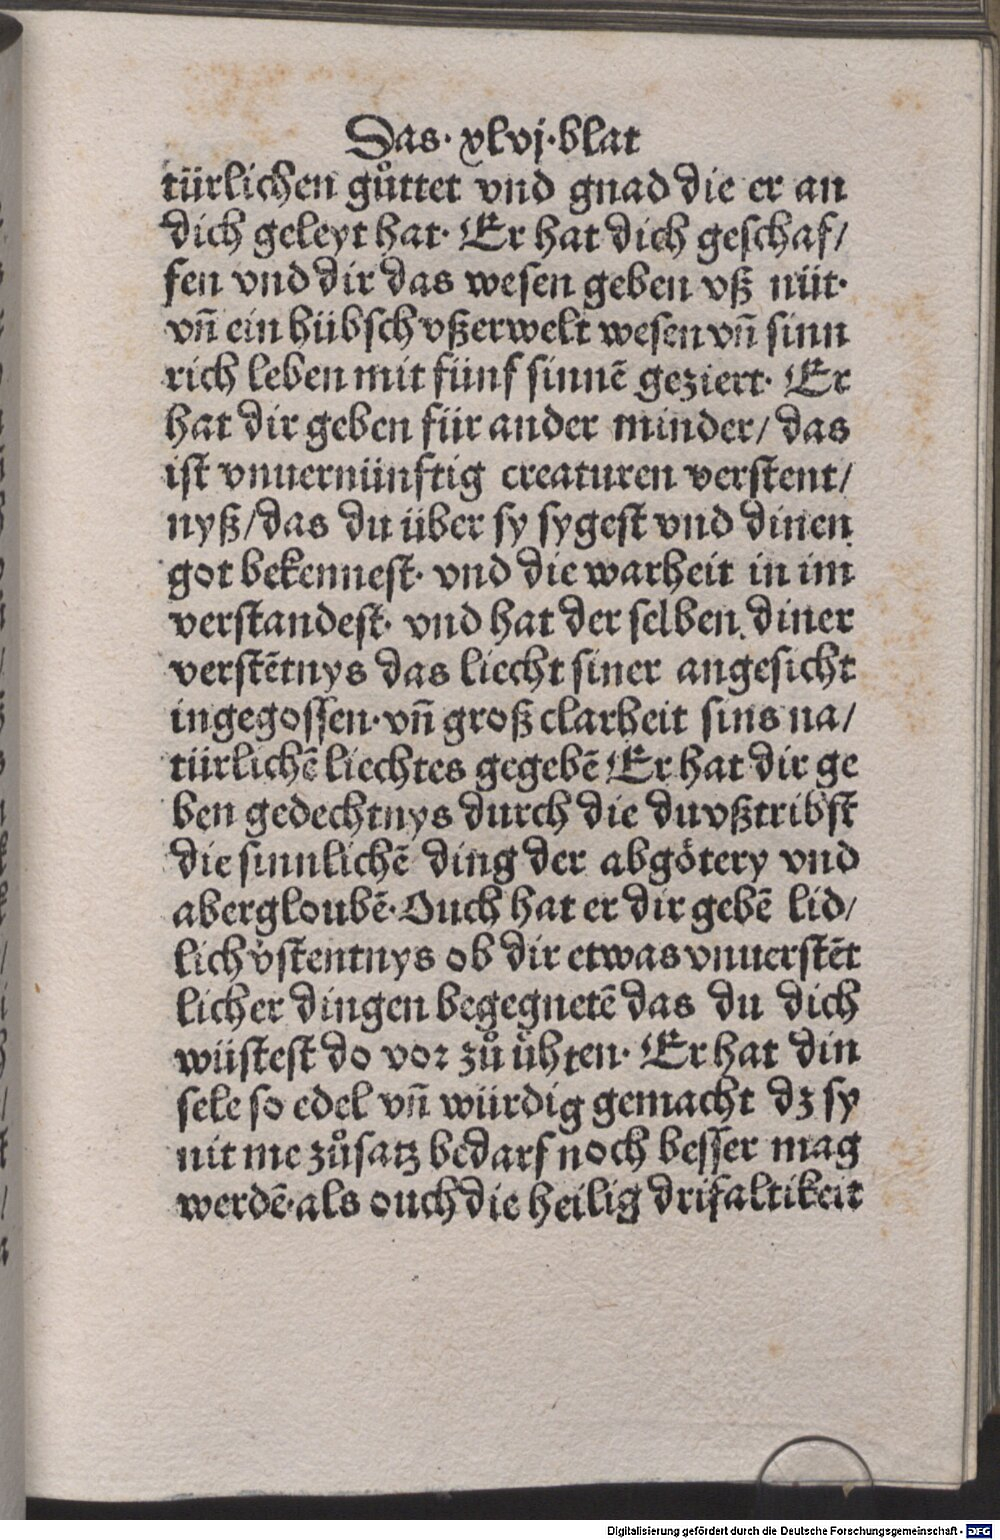 Das· xlvj·blat
türlichen gůttet vnd gnad die er an
dich geleyt hat· Er hat dich geschaf/
fen vnd dir das wesen geben vß nüt·
vn̄ ein hübsch vßerwelt wesen vn̄ sinn
rich leben mit fünf sinnē geziert· Er
hat dir geben für ander minder/ das
ist vnuernünftig creaturen verstent/
nyß/das du über sy sygest vnd dinen
got bekennest· vnd die warheit in im
verstandest· vnd hat der selben diner
verstētnys das liecht siner angesicht
ingegossen·vn̄ groß clarheit sins na/
türlichē liechtes gegebē Er hat dir ge
ben gedechtnys durch die du vßtribst
die sinnlichē ding der abgötery vnd
abergloubē·Ouch hat er dir gebē lid/
lich v̉stentnys ob dir etwas vnuerstēt
licher dingen begegnetē das du dich
wüstest do vor zů ühten· Er hat din
sele so edel vn̄ würdig gemacht dz sy
nit me zůsatz bedarf noch besser mag
werdē·als ouch die heilig drifaltikeit
Digitalisierung gefördert durch die Deutsche Forschungsgemeinschaft - DFG